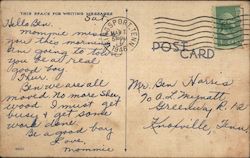 THIS SPACE FOR WRITING MESSAGES
Sat
Hello Ben.
Mommie missed
you this morning
am going to town
you be a real
good boy.
Ben we are all
moved. No more
wood. I must get
busy & get some
work done.
Be a good boy
Love,
mommie
KINGSPORT, TENN.
POST CARD
Mr. Ben Harris
To A.L. 
Greenway R. R.
Knoxville, Tenn.